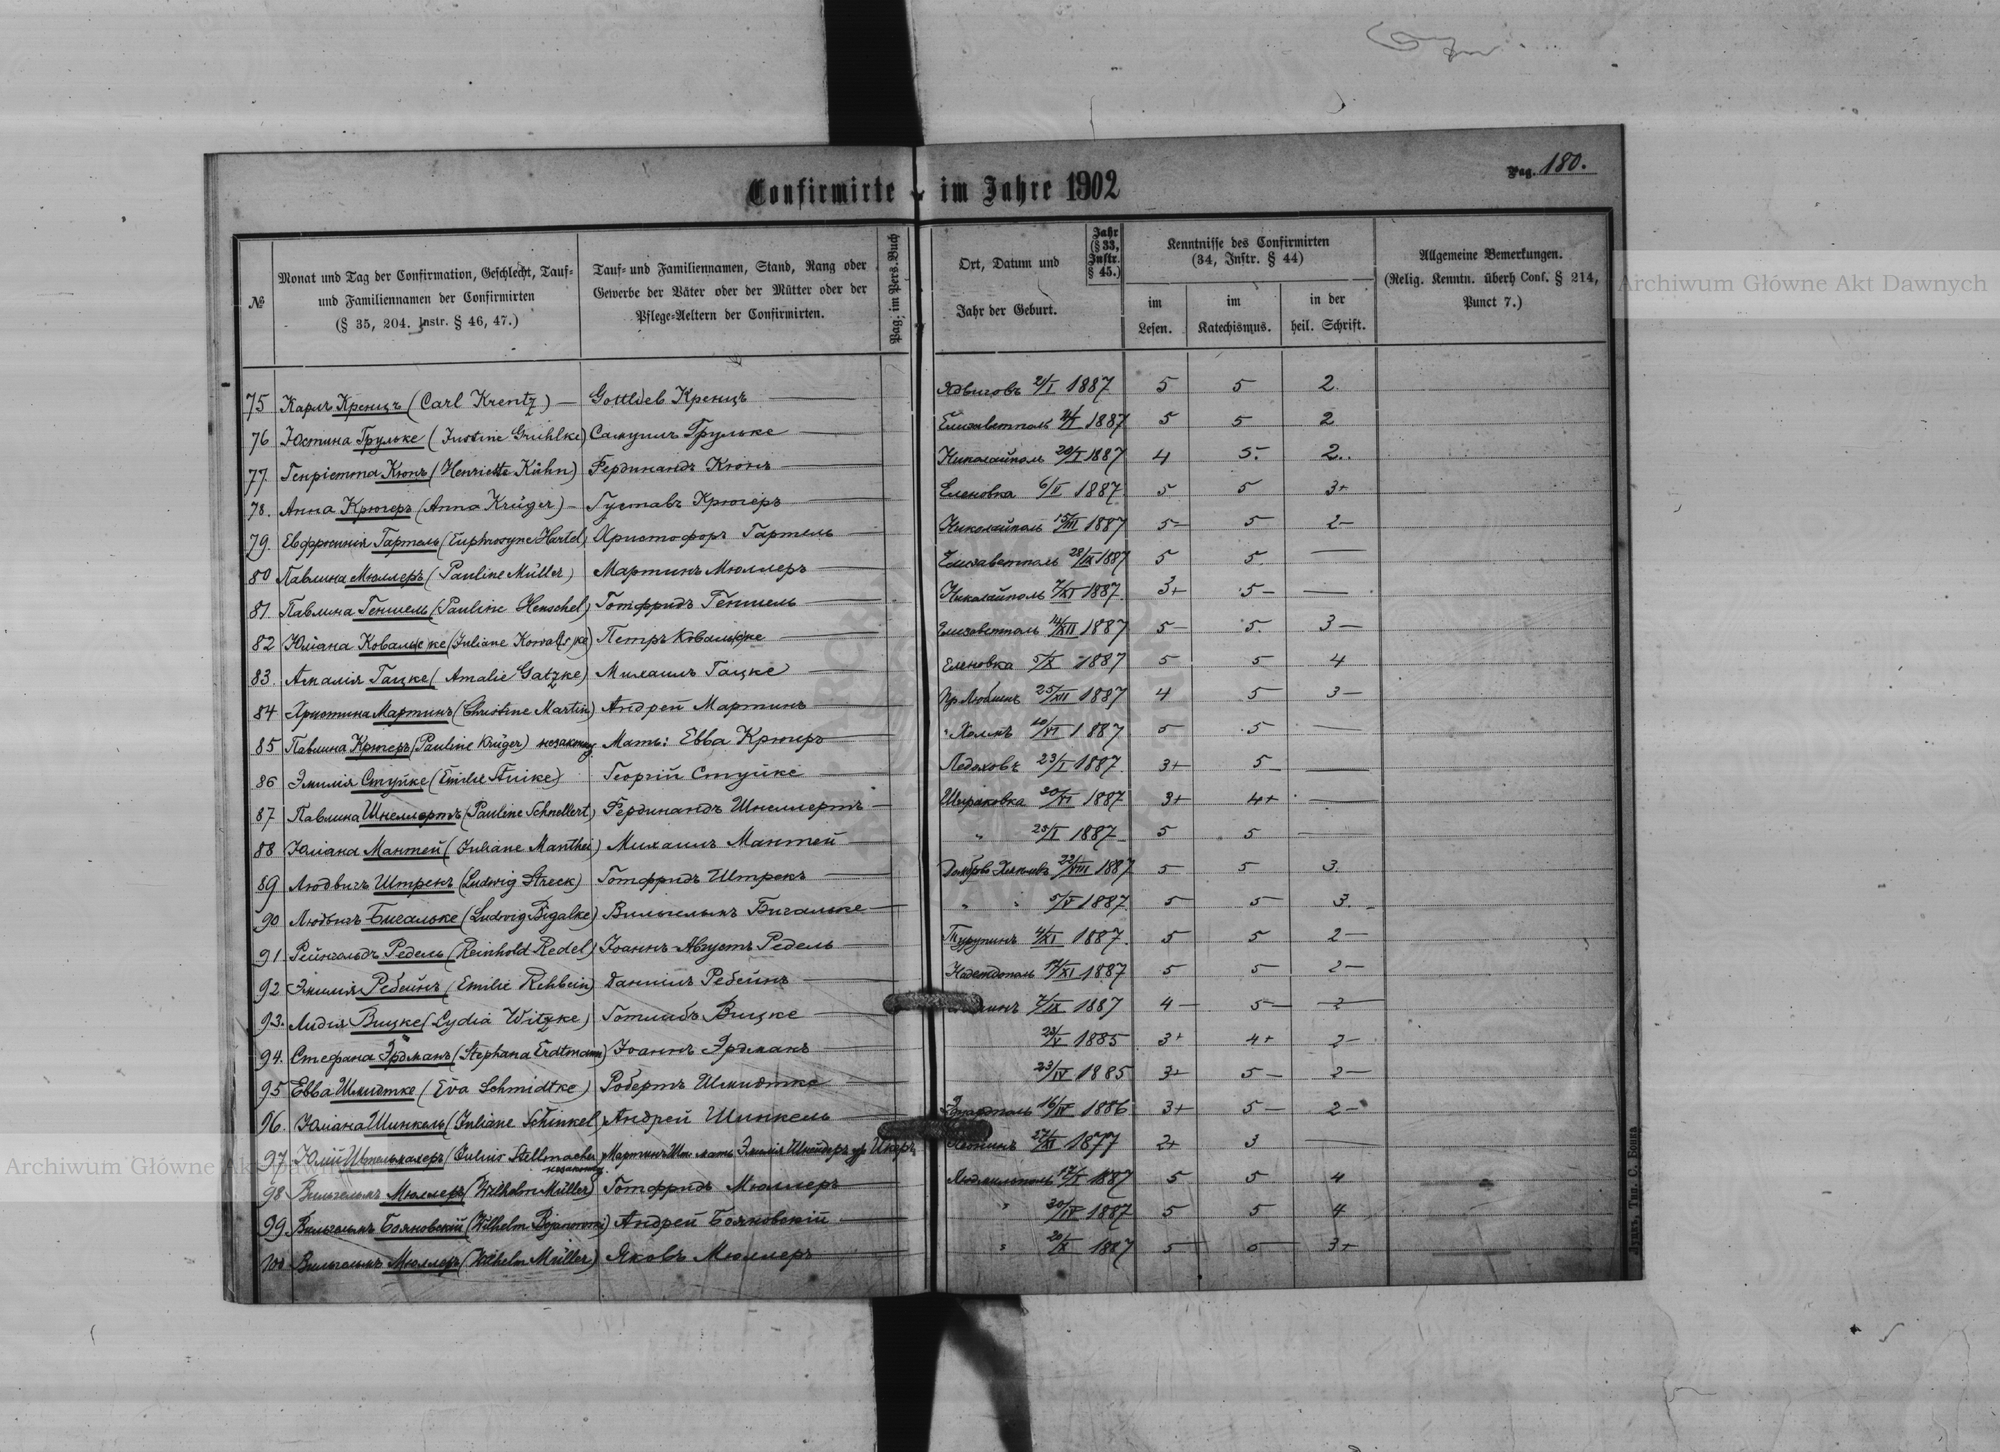 Confirmirte im Jahre 1902
Pag. 180.
№
Monat und Tag der Confirmation, Geschlecht, Tauf-
und Familiennamen der Confirmirten
(§ 35, 204. Instr. § 46, 47.)
Tauf- und Familiennamen, Stand, Rang oder
Gewerbe der Väter oder der Mütter oder der
Pflege-Aeltern der Confirmirten.
Pag. im Pers. Buch
Ort, Datum und
Jahr der Geburt.
Jahr
(§ 33,
Instr.
§ 45.)
Kenntnisse des Confirmirten
(34, Instr. § 44)
im
Lesen.
im
Katechismus.
in der
heil. Schrift.
Allgemeine Bemerkungen.
(Relig. Kenntn. überh Conf. § 214,
Punct 7.)
75 Карлъ Кренцъ (Carl Krentz) — Gottlieb Кренцъ — Ядвиговъ 2/I 1887 5 5 2
76 Юстина Грульке (Justine Gruhlke) Самуилъ Грульке — Елизаветполь 1887 5 5 2
77. Генріетта Кюнъ (Henriette Kühn) Фердинандъ Кюнъ — Николайполь 20/I 1887 4 5. 2..
78. Анна Крюгеръ (Anna Krüger) — Густавъ Крюгеръ — Еленовка 6/II 1887 5 5 3+
79. Евфросинія Гартель (Euphrosyne Hartel) Христофоръ Гартель — Николайполь 15/III 1887 5- 5 2-
80 Павлина Мюллеръ (Pauline Müller) Мартинъ Мюллеръ — Елизаветполь 28/IX 1887 5 5. —
81. Павлина Геншель (Pauline Henschel) Готфридъ Геншель — Николайполь 7/XI 1887. 3+ 5- —
82 Юліана Ковальске (Juliane Kowalske) Петръ Ковальске — Елизаветполь 14/XII 1887 5- 5. 3-
83. Амалія Гацке (Amalie Gatzke) Михаилъ Гацке — Еленовка 5/X 1887 5 5 4
84 Христина Мартинъ (Christine Martin) Андрей Мартинъ — Люблинъ 25/XII 1887 4 5 3-
85 Павлина Крюгеръ (Pauline Krüger) незаконн. Мать: Евва Крюгеръ — Холмъ 10/VI 1887 5 5 —
86 Эмилія Стуйке (Emilie Stuike) Георгій Стуйке — Ледоховъ 23/I 1887. 3+ 5- —
87 Павлина Шнеллертъ (Pauline Schnellert) Фердинандъ Шнеллертъ — 1887 3+ 4+ —
88 Юліана Мантей (Juliane Manthei) Михаилъ Мантей — „ 23/I 1887 5 5 —
89 Людвигъ Штрекъ (Ludwig Streck) Готфридъ Штрекъ — 22/VIII 1887 5 5 3.
90 Людвигъ Бигальке (Ludwig Bigalke) Вильгельмъ Бигальке — „ „ 5/V 1887. 5 5 3.
91. Рейнгольдъ Редель (Reinhold Redel) Іоаннъ-Августъ Редель — Турупинъ 4/XI 1887. 5 5 2-
92 Эмилія Ребейнъ (Emilie Rehbein) Даніилъ Ребейнъ — 1887 5 5 2-
93. Лидія Вицке (Lydia Witzke) Готлибъ Вицке — 7/IX 1887 4- 5- 2
94. Стефана Эрдманъ (Stephana Erdtmann) Іоаннъ Эрдманъ — 23/V 1885 3+ 4+ 2-
95 Евва Шмидтке (Eva Schmidtke) Робертъ Шмидтке — 23/IV 1885 3+ 5- 2-
96. Юліана Шинкель (Juliane Schinkel) Андрей Шинкель — 16/IV 1886 3+ 5- 2-
97 Юлій Штельмахеръ (Julius Stellmacher) незаконн. Мартинъ мать Эмилія 27/XI 1877 2+ 3 —
98 Вильгельмъ Мюллеръ (Wilhelm Müller) Готфридъ Мюллеръ — Людмилполь 17/I 1887 5 5 4
99 Вильгельмъ Бояновскій (Wilhelm Bojanowski) Андрей Бояновскій — „ 30/IV 1887 5 5 4
100 Вильгельмъ Мюллеръ (Wilhelm Müller) Яковъ Мюллеръ — „ 20/X 1887 5 5 3+
Archiwum Główne Akt Dawnych
Archiwum Główne Akt Dawnych